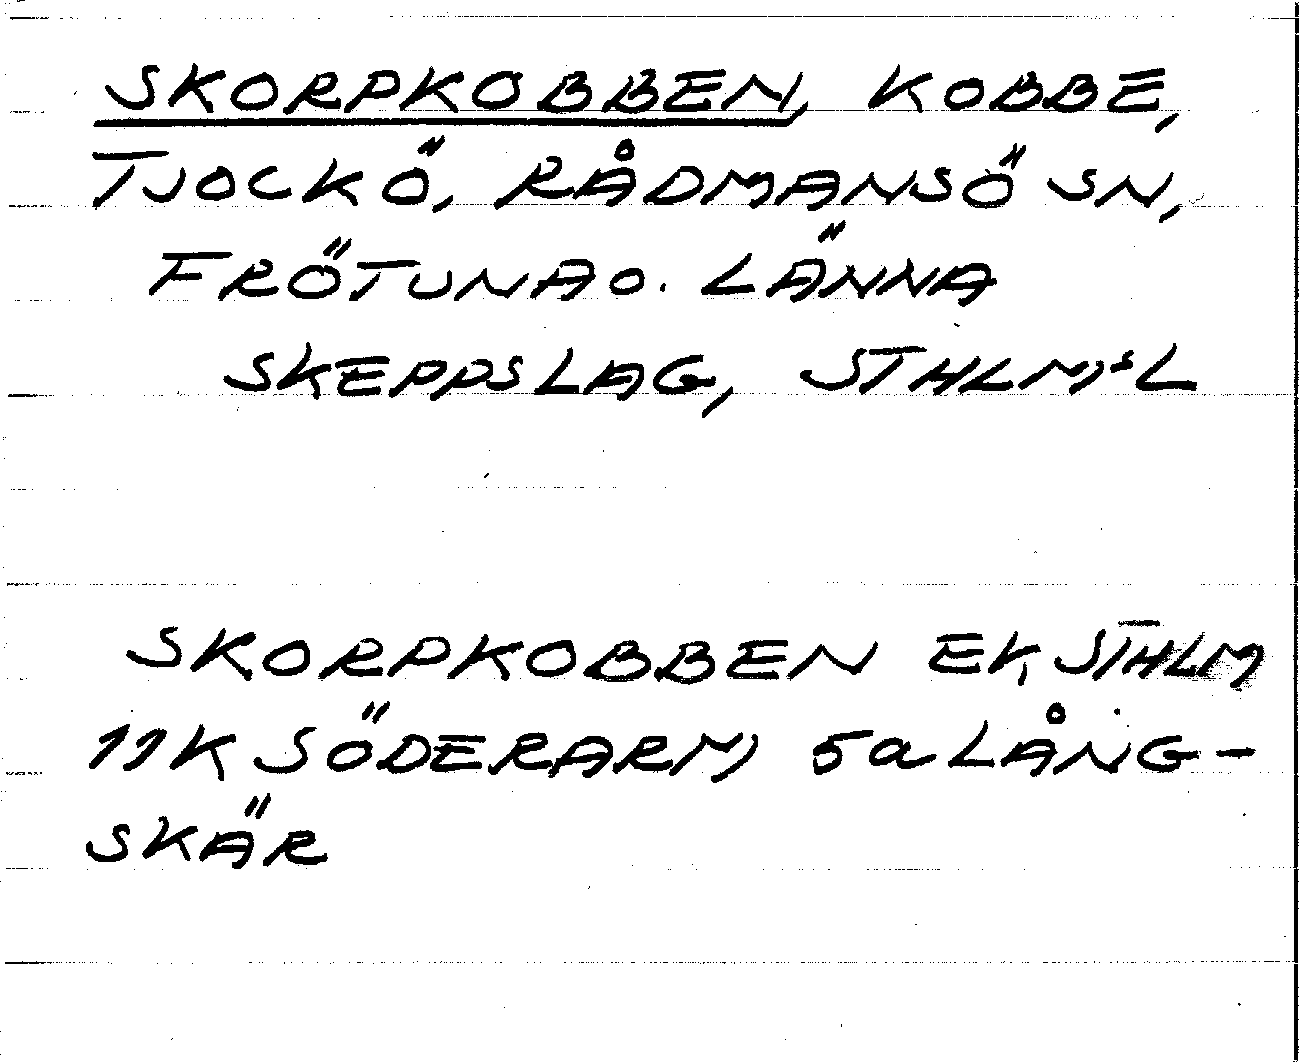 SKORPKOBBEN, KOBBE,
TJOCKÖ, RÅDMANSÖ SN,
FRÖTUNA O. LÄNNA
SKEPPSLAG, STHLMS L
SKORPKOBBEN EK, STHLM
11K SÖDERARM 5a LÅNG-
SKÄR